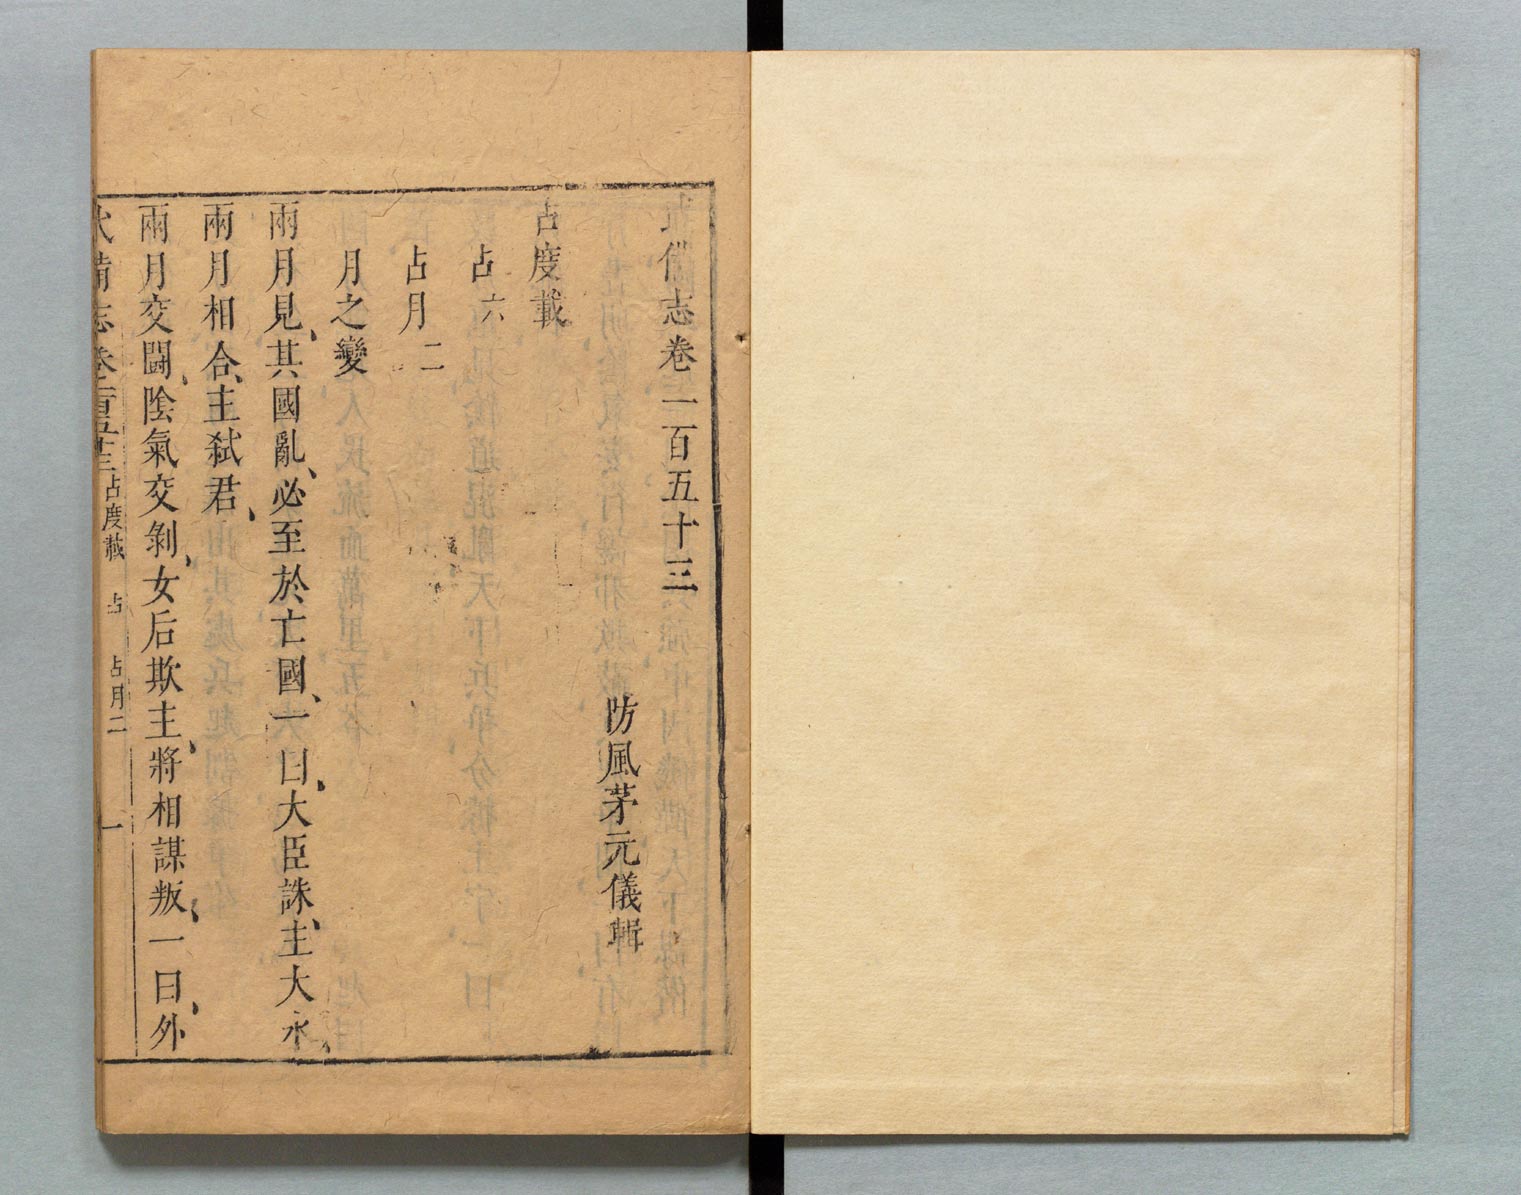 武備志卷一百五十三
防風茅元儀輯
占度載
占六
占月二
月之變
兩月見、其國亂、必至於亡國、一曰、大臣誅、主大水、
兩月相合、主弒君、
兩月交鬬、陰氣交剝、女后欺主、將相謀叛、一曰、外
武備志卷一百五十三 占度載 占 占月二 一